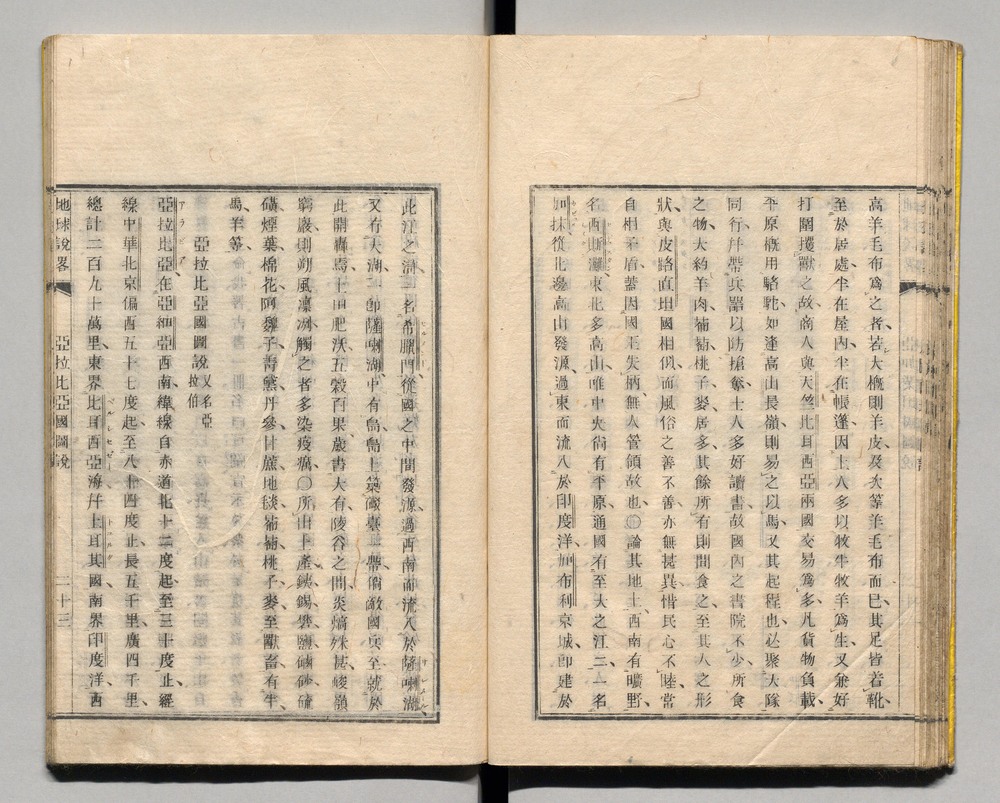 高羊毛布爲之者若大槪則羊皮及次等羊毛布而已其足皆着靴
至於居處半在屋內半在帳蓬因土人多以牧牛牧羊爲生又兼好
打圍獲獸之故商人與天竺比耳西亞兩國交易爲多凡貨物負載
平原槪用駱駝如逢高山長嶺則易之以馬又其起程也必聚大隊
同行幷帶兵器以防搶奪士人多好讀書故國內之書院不少所食
之物大約羊肉葡萄桃子麥居多其餘所有則間食之至其人之形
狀與皮路直坦國相似而風俗之善不善亦無甚異惜民心不睦常
自相矛盾蓋因國王失柄無人管領故也〇論其地土西南有曠野
名西斯灘東北多高山唯中央尙有平原通國有至大之江二一名
加抹從北邊高山發源過東而流入於印度洋加布利京城卽建於
此江之濱一名希臘門從國之中間發源過西南而流入於薩喇湖
又有大湖一卽薩喇湖中有島島上築礮臺一帶倘敵國兵至就於
此開轟焉土田肥沃五穀百果歲書大有陵谷之間炎熇殊甚峻嶺
窮巖則朔風凜冽觸之者多染疫癘〇所出土產鐵錫礬鹽硇砂硫
磺煙葉棉花阿魏子靑黛丹參甘蔗地毯葡萄桃子麥至獸畜有牛
馬羊等
亞拉比亞國圖說又名亞拉伯
亞拉比亞在亞細亞西南緯線自赤道北十二度起至三十度止經
線中華北京偏西五十七度起至八十四度止長五千里廣四千里
總計二百九十萬里東界比耳西亞海幷土耳其國南界印度洋西
地球說畧 亞拉比亞國圖說 二十三